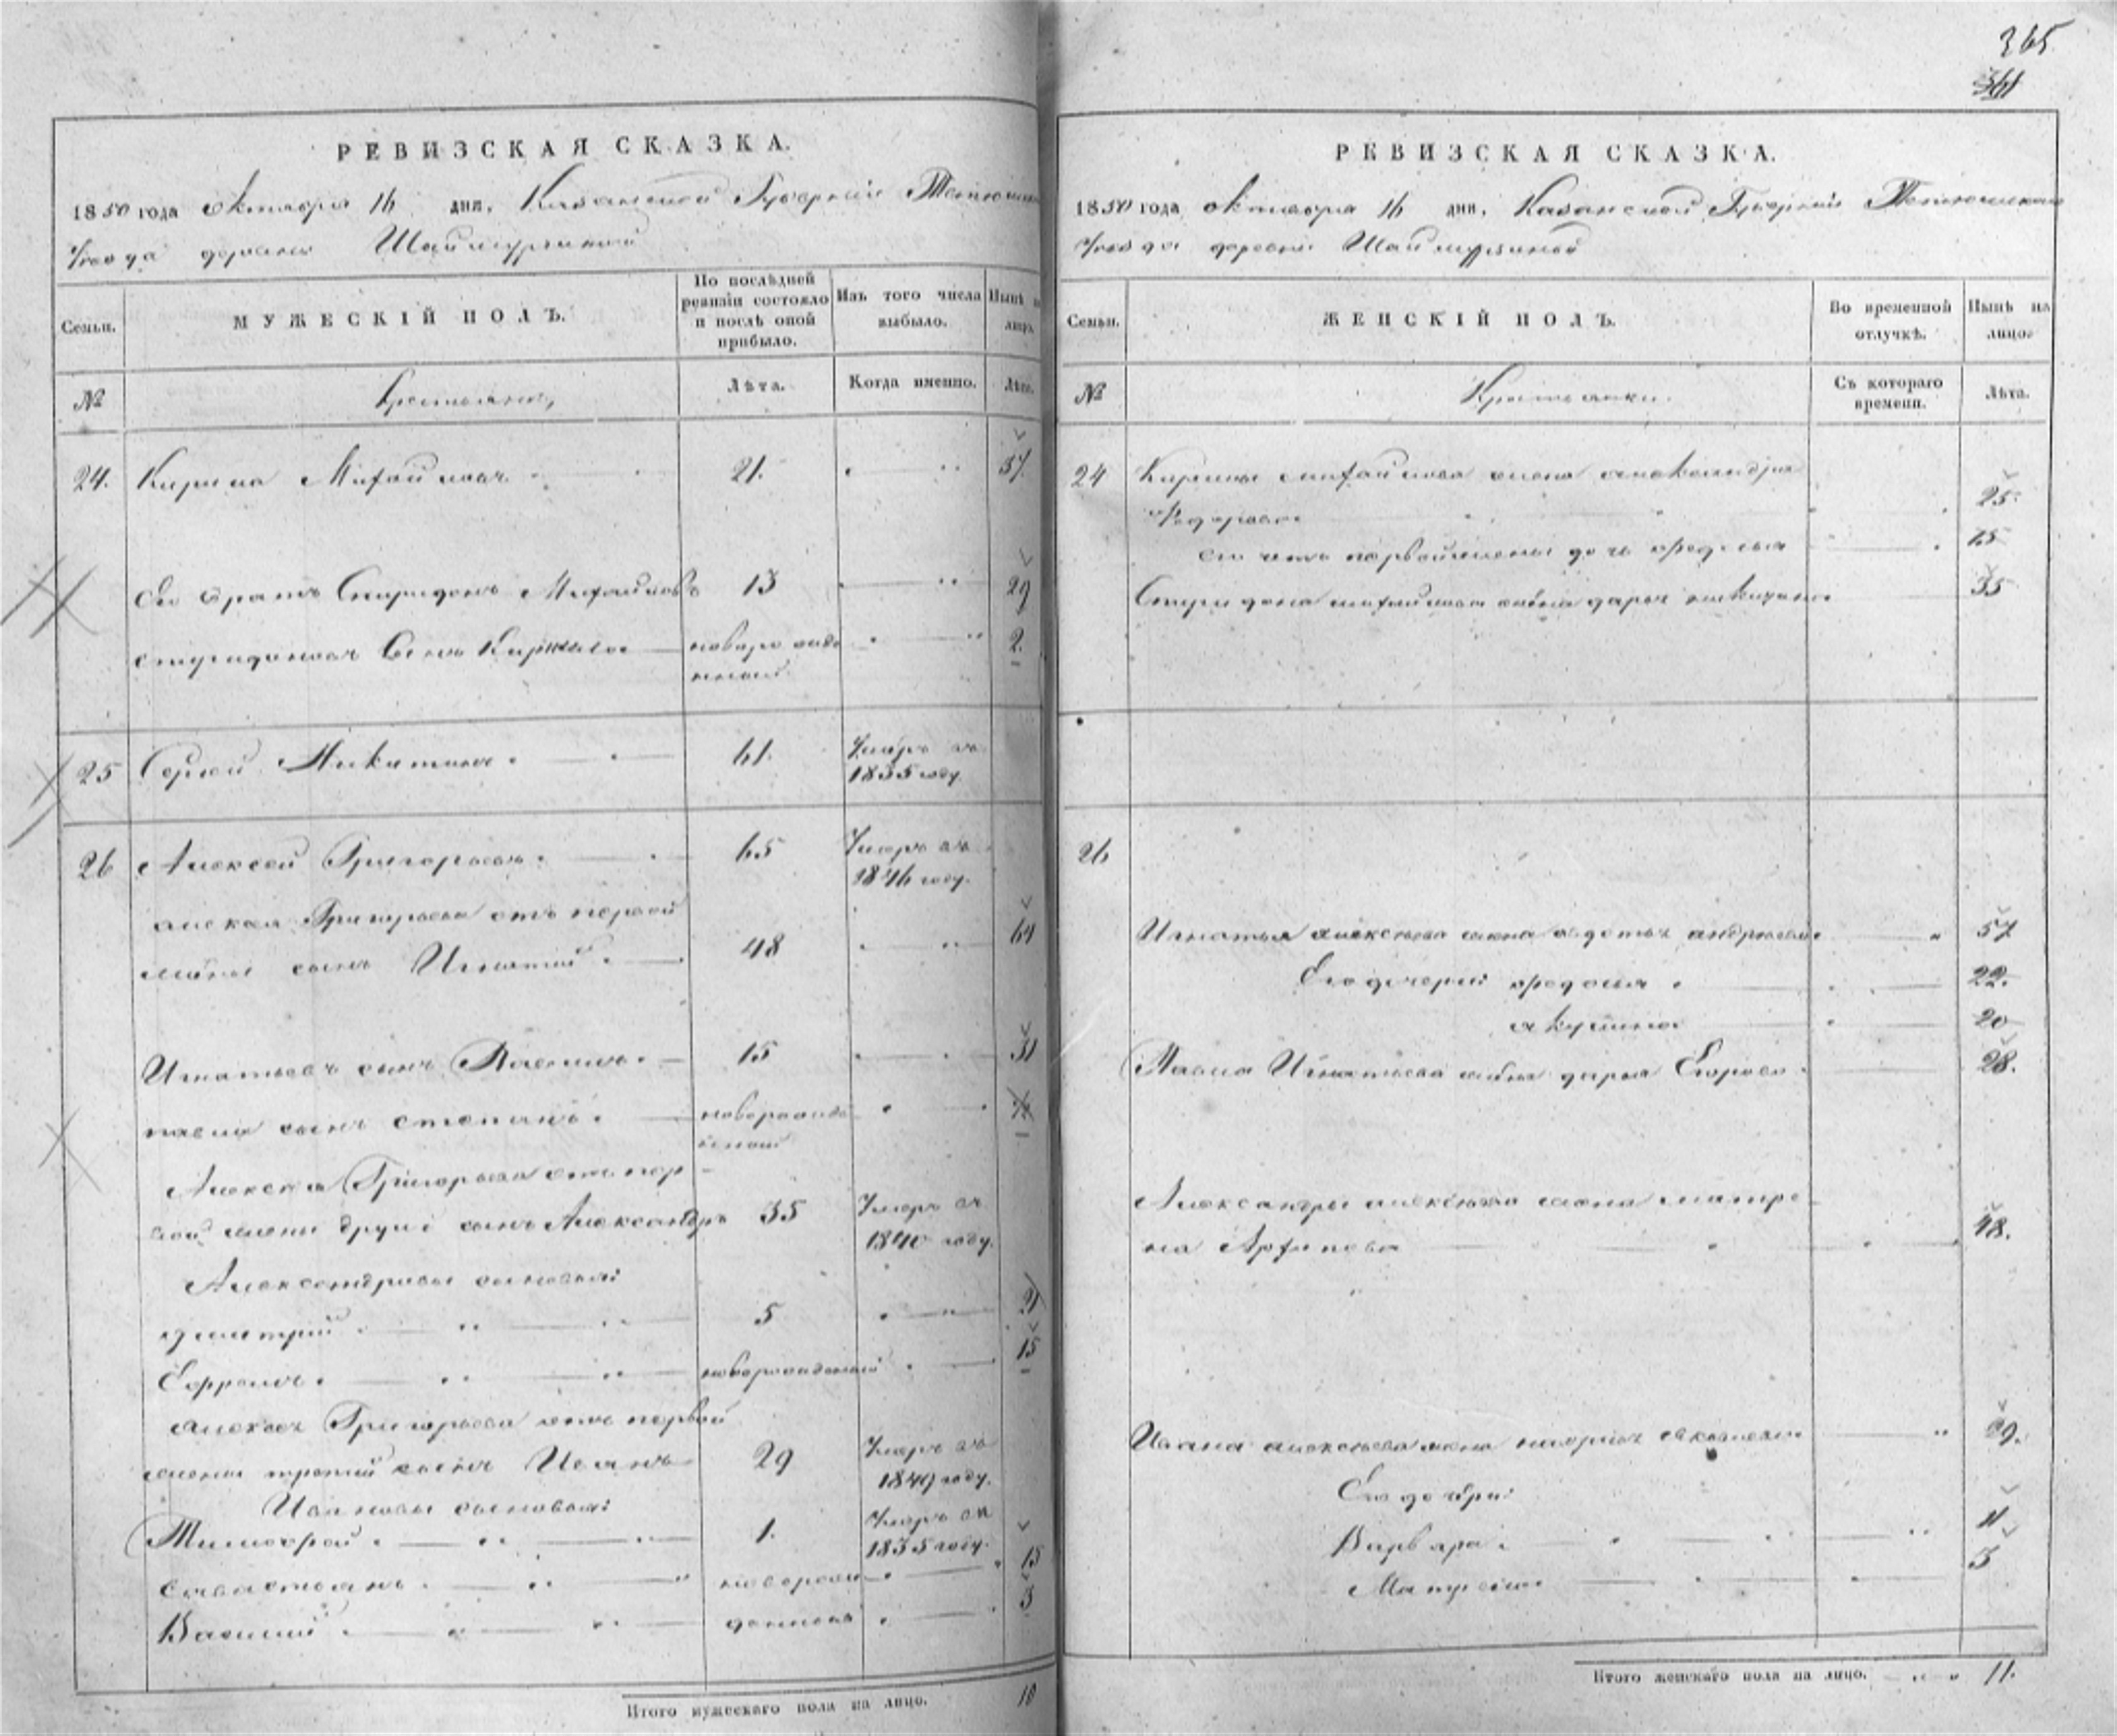 365
361
РЕВИЗСКАЯ СКАЗКА.
1850 года октября 16 дня, Казанской Губернии Тетюшскаго
Уезда деревни Шаймурзиной
Семьи.
МУЖЕСКІЙ ПОЛЪ.
По послѣдней ревизіи состояло и послѣ оной прибыло.
Изъ того числа выбыло.
Нынѣ на лицо.
№
Крестьяне,
Лѣта.
Когда именно.
Лѣта.
24. Кирила Михайловъ 21. 37.
Его братъ Спиридонъ Михайловъ 13 29
Спиридоновъ Сынъ Кирила новорожденный 2.
25 Сергей Никитинъ 61. Умеръ въ 1835 году.
26 Алексей Григорьевъ 65 Умеръ въ 1846 году.
Алексея Григорьева отъ первой
жены сынъ Игнатий 48 64
Игнатьевъ сынъ Павелъ 15 31
Павла сынъ Степанъ новорожденной
Алексея Григорьева отъ пер-
вой жены другой сынъ Александръ 35 Умеръ въ 1840 году.
Александровы сыновья:
Дмитрий 5 21
Ефремъ новорожденный 15
Алексея Григорьева отъ первой
жены третий сынъ Иванъ 29 Умеръ въ 1849 году.
Ивановы сыновья:
Тимофей 1. Умеръ въ 1835 году.
Савастьянъ новорож- 15
Василий денные 3
Итого мужескаго пола на лицо. 10
РЕВИЗСКАЯ СКАЗКА.
1850 года октября 16 дня, Казанской Губернии Тетюшскаго
Уезда деревни Шаймурзиной
Семьи.
ЖЕНСКІЙ ПОЛЪ.
Во временной отлучкѣ.
Нынѣ на лицо.
№
Крестьянки.
Съ котораго времени.
Лѣта.
24 Кирилы Михайлова жена Александра
Федорова 25.
Его отъ первой жены дочь Федосья 15
Спиридона Михайлова жена Дарья 35
26
Игнатья Алексеева жена Авдотья Андреева 57
Его дочери: Федосья 22.
Акулина 20
Павла Игнатьева жена Дарья Егорова 28.
Александры Алексеева жена Матре-
на Архипова 48.
Ивана Алексеева жена 39.
Его дочери:
Варвара 11
Матрена 5
Итого женскаго пола на лицо. 11.